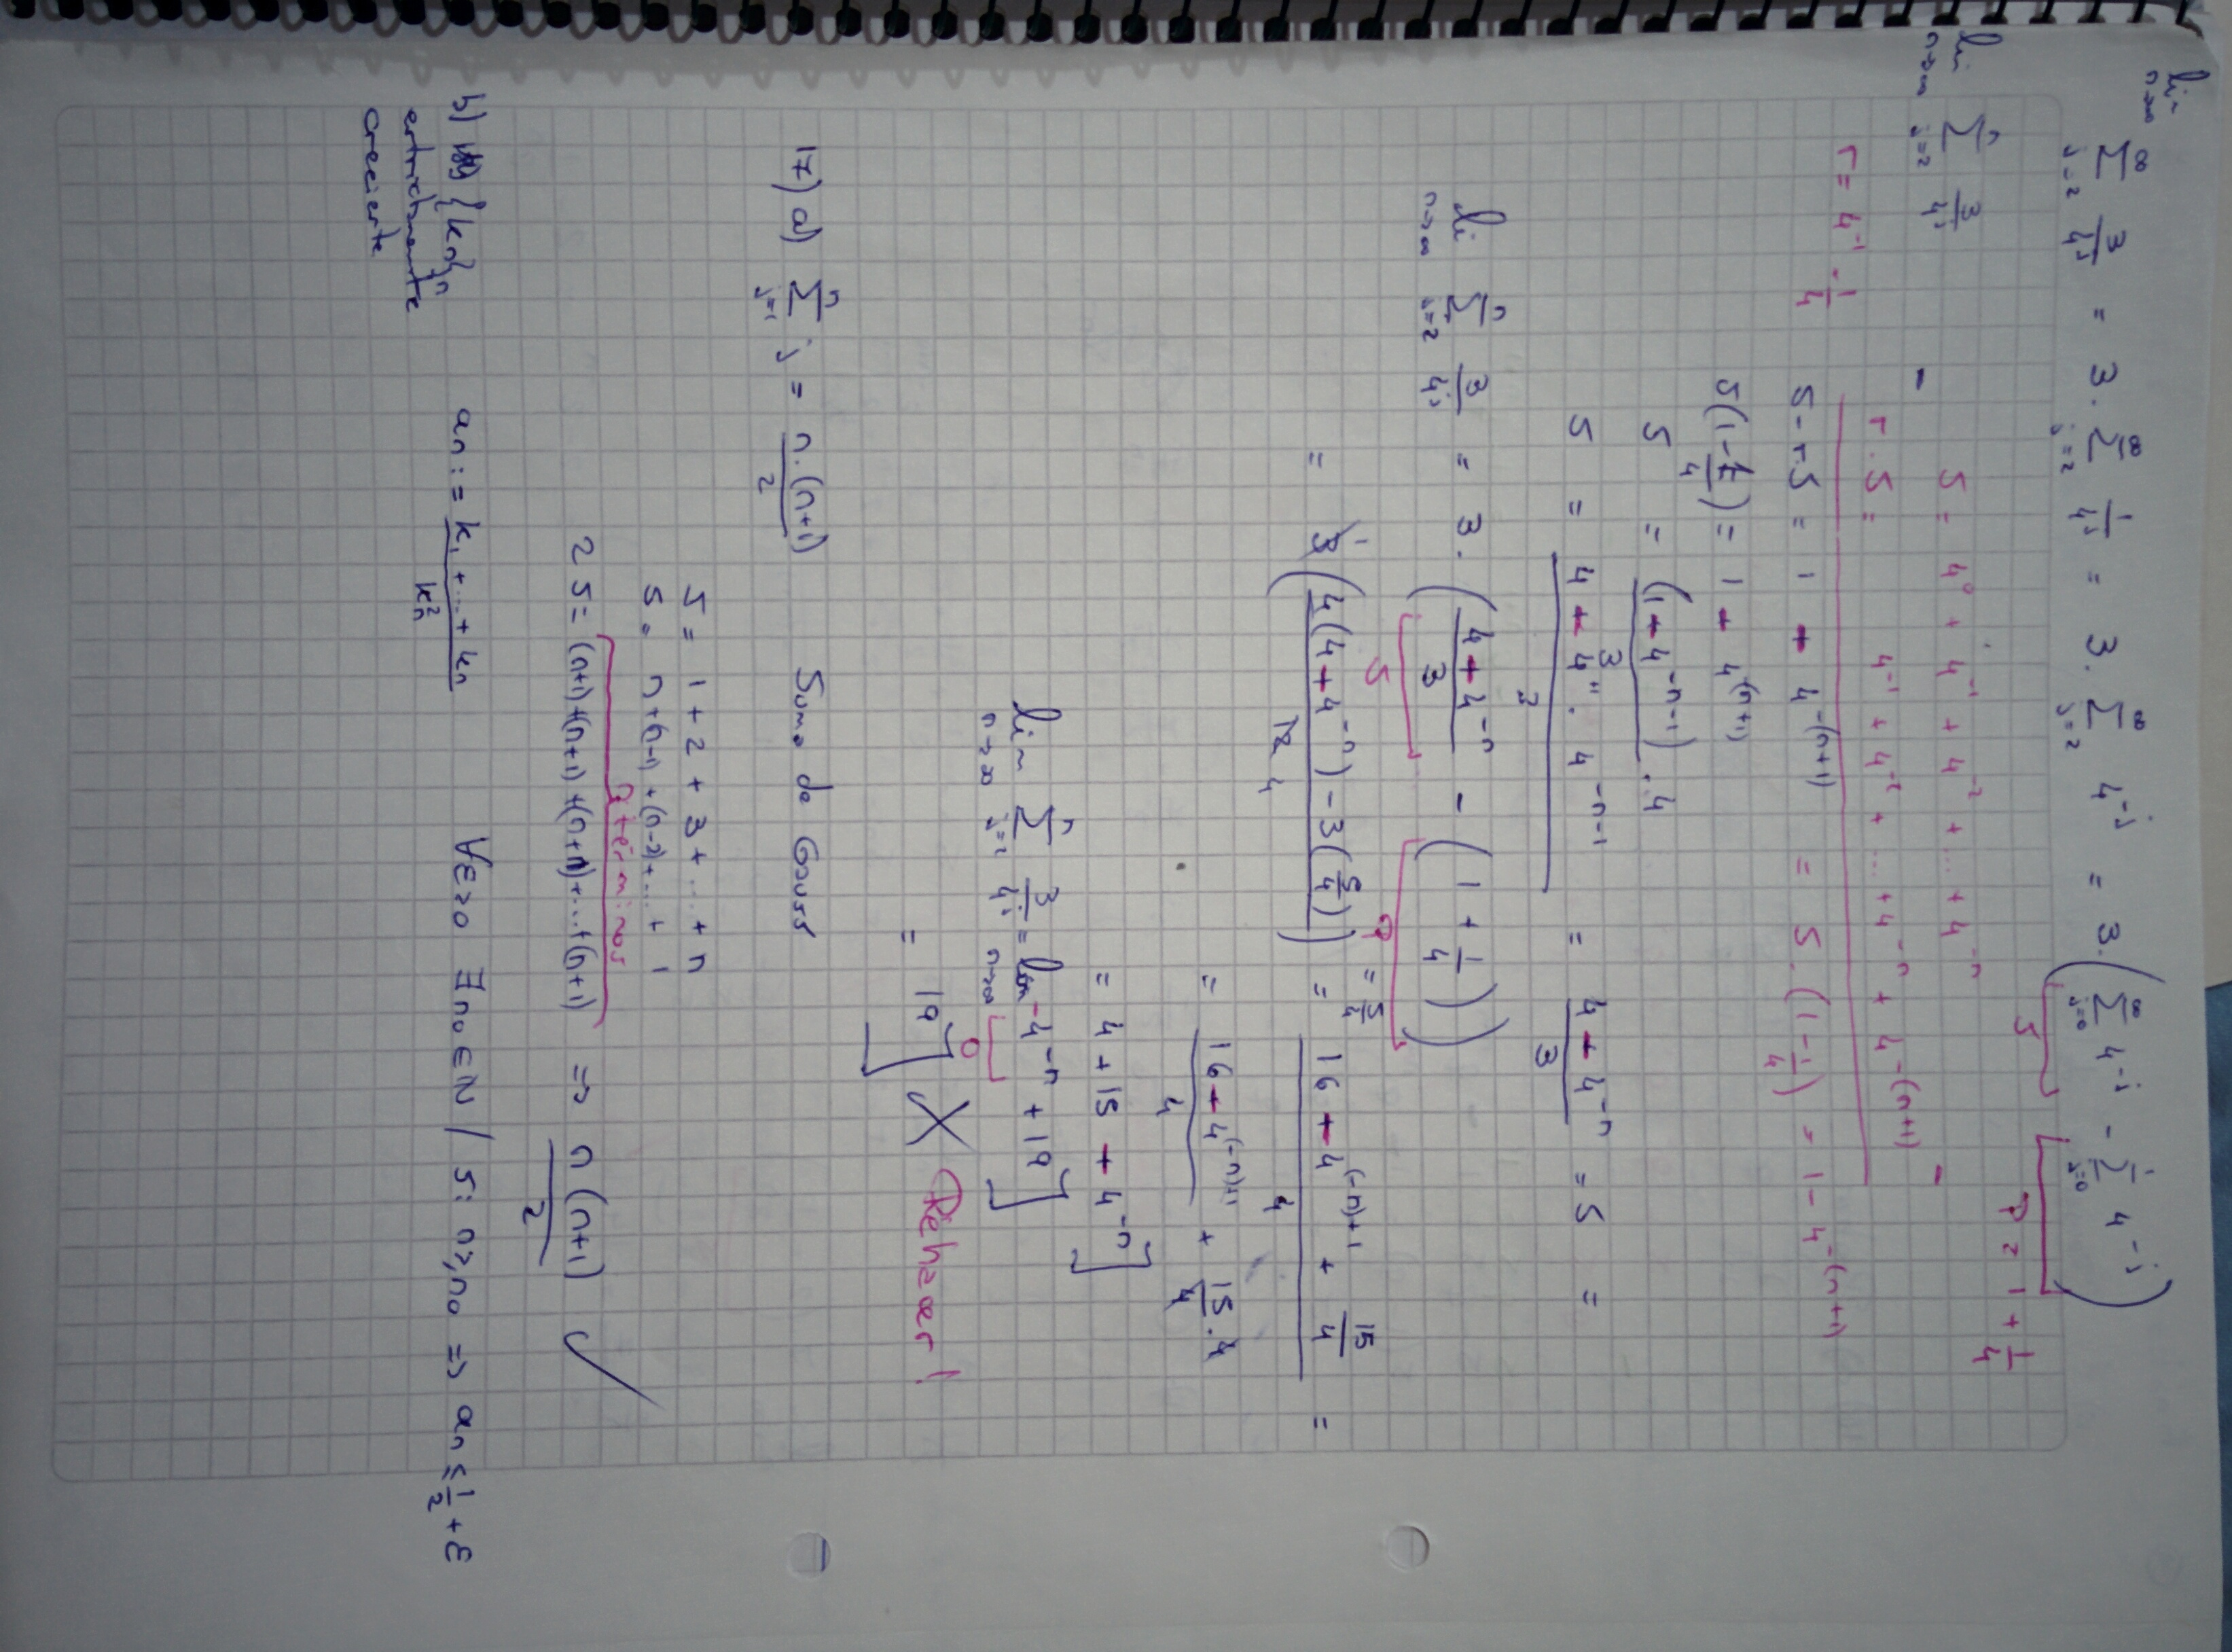 lim n→∞
∑_{j=2}^{∞} 3/4^j = 3 · ∑_{j=2}^{∞} 1/4^j = 3 · ∑_{j=2}^{∞} 4^{-j} = 3 · (∑_{j=0}^{∞} 4^{-j} - ∑_{j=0}^{1} 4^{-j})
S P = 1 + 1/4
lim n→∞ ∑_{j=2}^{n} 3/4^j
S = 4^0 + 4^{-1} + 4^{-2} + ... + 4^{-n}
- r · S = 4^{-1} + 4^{-2} + ... + 4^{-n} + 4^{-(n+1)} -
r = 4^{-1} - 1/4
S - r.S = 1 - 4^{-(n+1)} = S · (1 - 1/4) = 1 - 4^{-(n+1)}
S(1 - 1/4) = 1 - 4^{-(n+1)}
S = (1 - 4^{-n-1})/3 · 4
S = (4 - 4 · 4^{-n-1})/3 = (4 - 4^{-n})/3 = S =
lim n→∞ ∑_{j=2}^{n} 3/4^j = 3 · ((4 - 4^{-n})/3 - (1 + 1/4))
S P = 5/4
= 3 ((4(4 - 4^{-n}) - 3(5/4))/12 4) = (16 - 4^{(-n)+1} + 15/4)/4 =
= (16 - 4^{(-n)+1})/4 + 15/4 · 4
= 4 + 15 - 4^{-n}]
lim n→∞ ∑_{j=2}^{n} 3/4^j = lim n→∞ -4^{-n} + 19]
0
= 19] X Rehacer!
17) a) ∑_{j=1}^{n} j = n.(n+1)/2 Suma de Gauss
S = 1 + 2 + 3 + ... + n
S = n + (n-1) + (n-2) + ... + 1
n términos
2S = (n+1) + (n+1) + (n+1) + ... + (n+1) ⇒ n(n+1)/2 ✓
b) {k_n}_n a_n := (k_1 + ... + k_n)/k_n^2 ∀ε>0 ∃n_0 ∈ N / si n ≥ n_0 ⇒ a_n ≤ 1/2 + ε
estrictamente
creciente